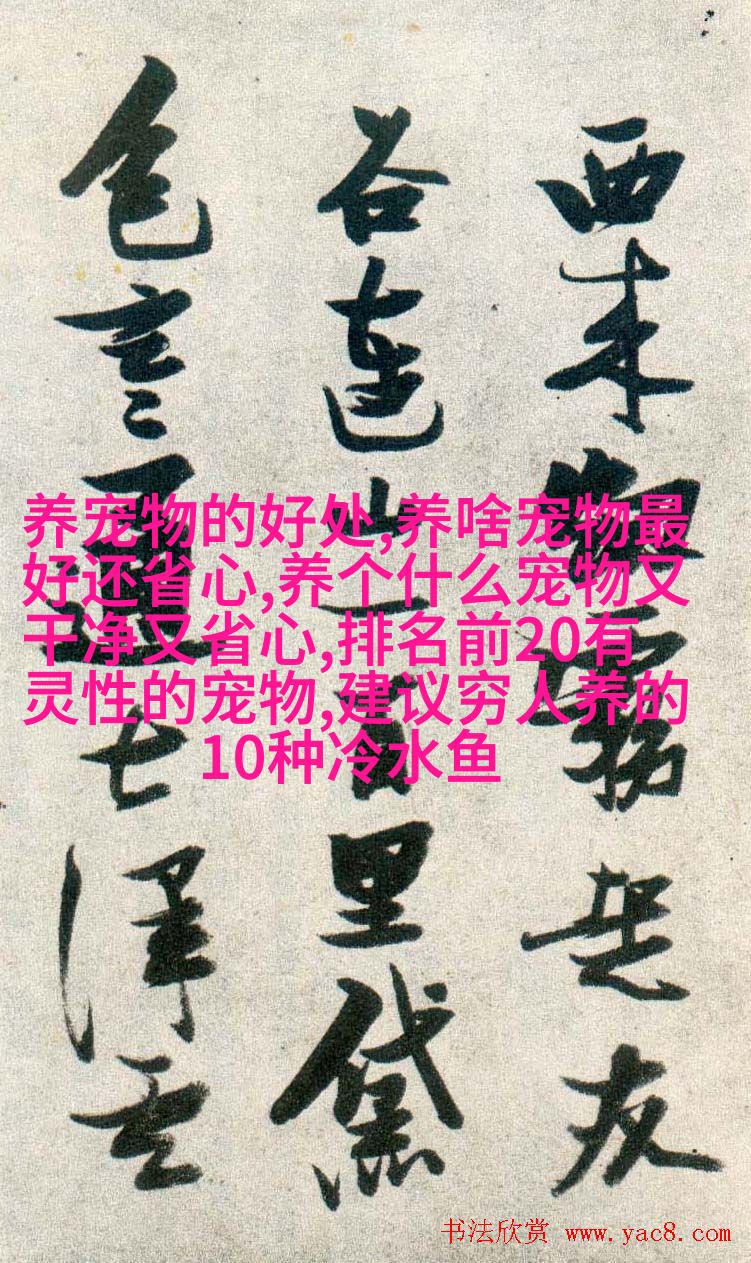 西来
谷連山一百里黛
色言還七澤
养宠物的好处,养啥宠物最
好还省心,养个什么宠物又
干净又省心,排名前20有
灵性的宠物,建议穷人养的
10种冷水鱼
书法欣赏 www.yac8.com